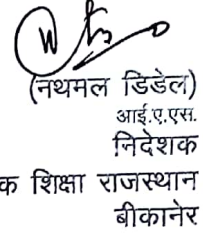 (नथमल डिडेल)
आई.ए.एस.
निदेशक
क शिक्षा राजस्थान
बीकानेर